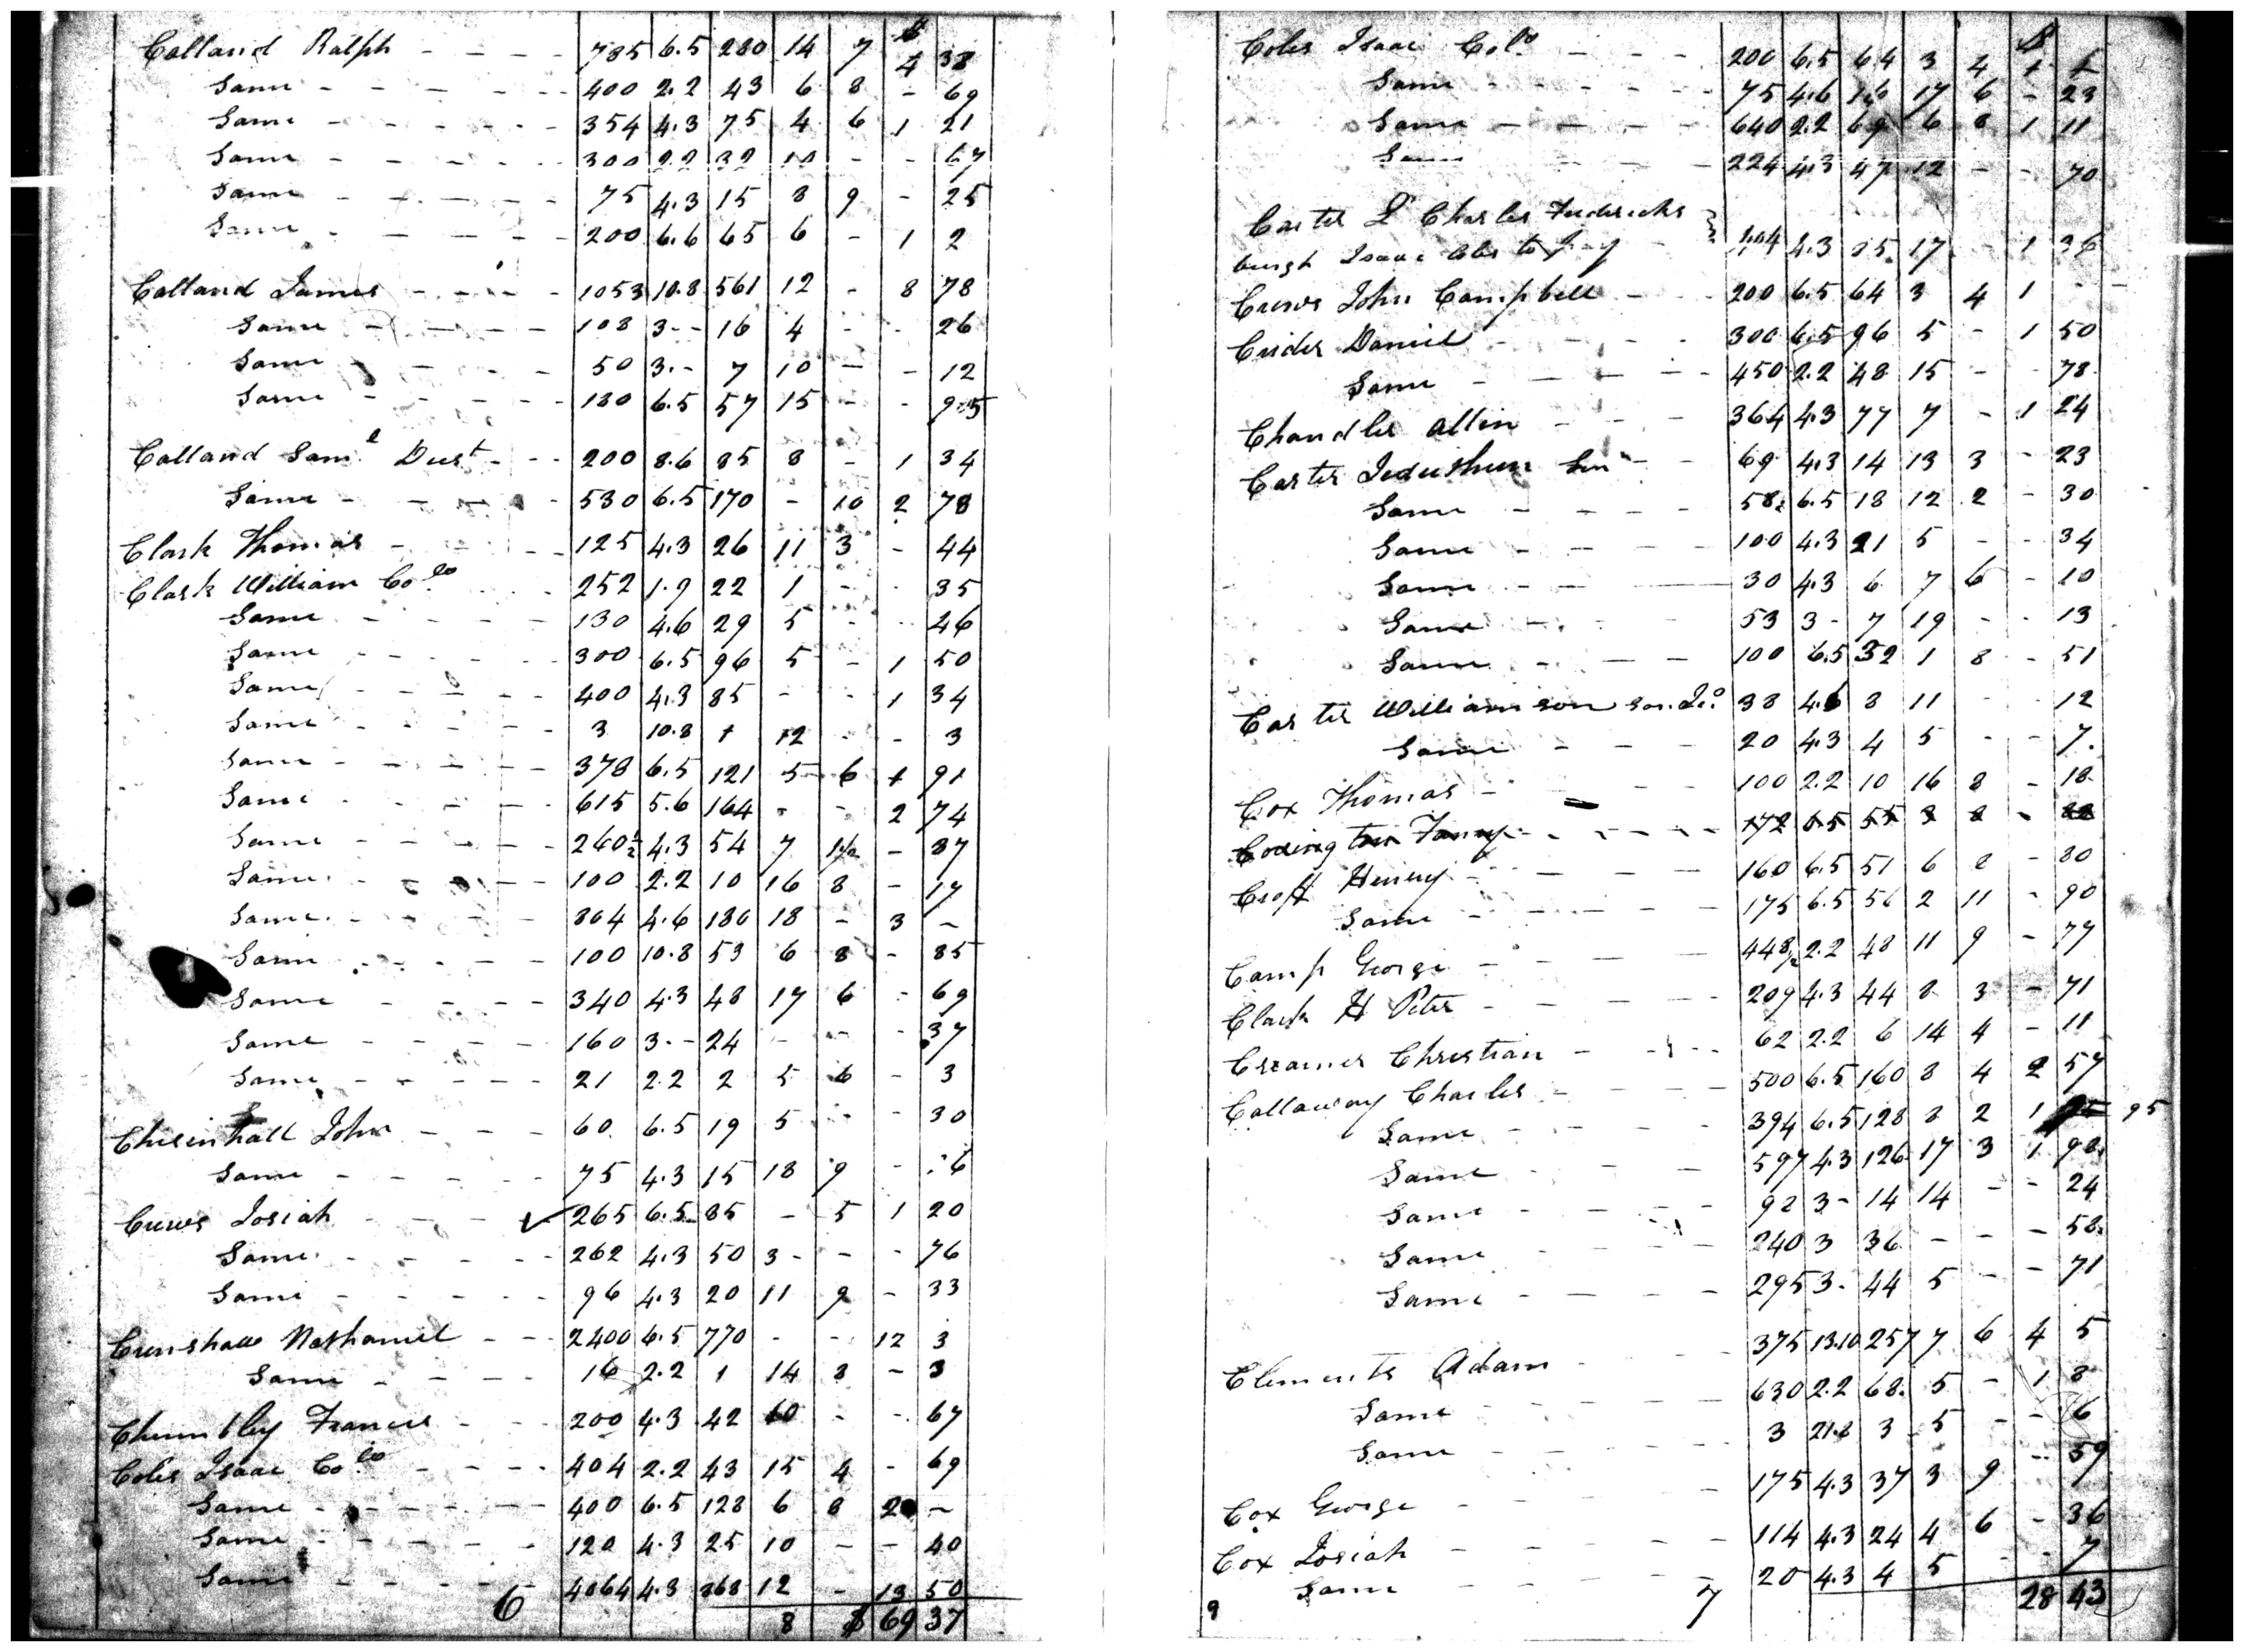 $
Calland Ralph - - - - 785 6.5 280 14 7 4 38
Same - - - - - - 400 2.2 43 6 8 - 69
Same - - - - - - 354 4.3 75 4 6 1 21
Same - - - - - 300 2.2 32 10 - - 67
Same - - - - - 75 4.3 15 8 9 - 25
Same - - - - 200 6.6 65 6 - 1 2
Calland James - - - - 1053 10.8 561 12 - 8 78
Same - - - - 108 3 - - 16 4 - - 26
Same - - - - 50 3. - 7 10 - - 12
Same - - - - - 180 6.5 57 15 - - 95
Calland Saml. Dust - - - 200 8.6 85 8 - 1 34
Same - - - - 530 6.5 170 - 10 2 78
Clark Thomas - - - - 125 4.3 26 11 3 - 44
Clark William Colo - 252 1.9 22 1 - - 35
Same - - - - 130 4.6 29 5 - - 46
Same - - - - 300 6.5 96 5 - 1 50
Same - - - - - 400 4.3 85 - - 1 34
Same - - - - - 3 10.8 1 12 - - 3
Same - - - - - 378 6.5 121 5 6 1 91
Same - - - - 615 5.6 164 - - 2 74
Same - - - - - 260½ 4.3 54 7 1½ - 87
Same - - - - - 100 2.2 10 16 8 - 17
Same - - - - 804 4.6 180 18 - 3 -
Same - - - - 100 10.8 53 6 8 - 85
Same - - - - 340 4.3 48 17 6 - 69
Same - - - - - 160 3. - 24 - - - 37
Same - - - - - 21 2.2 2 5 6 - 3
Chisinhall John - - - 60 6.5 19 5 - - 30
Same - - - - - 75 4.3 15 18 9 -
Crews Josiah - - - ✓ 265 6.5 85 - 5 1 20
Same - - - - - 262 4.3 50 3 - - - 76
Same - - - - - 96 4.3 20 11 9 - 33
Crenshaw Nathaniel - - - 2400 6.5 770 - - 12 3
Same - - - - 16 2.2 1 14 8 - 3
Chumbley Francis - - 200 4.3 42 10 - - 67
Coles Isaac Colo - - - - 404 2.2 43 15 4 - 69
Same - - - - - - 400 6.5 128 6 8 2 -
Same - - - - - - 120 4.3 25 10 - - 40
Same - - - - 4064 4.3 868 12 - 13 50
6 8 $ 69 37
$
Coles Isaac Colo - - - 200 6.5 64 3 4 1 1
Same - - - - - - 75 4.6 16 17 6 - 23
Same - - - - 640 2.2 69 6 8 1 11
Same - - - 224 4.3 47 12 - - 70
Carter Dr Charles Fredericks
burgh Isaac Coles to pay - } 404 4.3 85 17 - 1 36
Crews John Campbell - - 200 6.5 64 3 4 1 - -
Crider Daniel - - - - 300 6.5 96 5 - 1 50
Same - - - - - 450 2.2 48 15 - - 78
Chandler Allin - - - 364 4.3 77 7 - 1 24
Carter Jeduthun Sen - - 69 4.3 14 13 3 - 23
Same - - - - 58 6.5 18 12 2 - 30
Same - - - - 100 4.3 21 5 - - 34
Same - - - 30 4.3 6 7 6 - 10
Same - - - 53 3 - 7 19 - - 13
Same - - - 100 6.5 32 1 8 - 51
Carter Williamson son Jeo 38 4.6 8 11 - - 12
Same - - - 20 4.3 4 5 - - 7.
Cox Thomas - - - 100 2.2 10 16 8 - 18
Covington Fanny - - - - - 172 6.5 55 3 2 - 88
Croft Henry - - - - 160 6.5 51 6 8 - 80
Same - - - - - 175 6.5 56 2 11 - 90
Camp George - - - - 448½ 2.2 48 11 9 - 77
Clark H Peter - - - - 209 4.3 44 8 3 - 71
Creamer Christian - - - - 62 2.2 6 14 4 - 11
Callaway Charles - - - - 500 6.5 160 8 4 2 57
Same - - - - 394 6.5 128 8 2 1 95
Same - - - 597 4.3 126 17 3 1 98
Same - - - - 98 3 - 14 14 - - 24
Same - - - - 240 3 36 - - - 58
Same - - - - 295 3 - 44 5 - - 71
Clements Adam - - - 375 13.10 257 7 6 4 5
Same - - - - 630 2.2 68 5 - 1 8
Same - - - - 3 21.8 3 5 - - 6
Cox George - - - - 175 4.3 37 3 9 - 59
Cox Josiah - - - - 114 4.3 24 4 6 - 36
Same - - - - 20 4.3 4 5 - - 7
9 7 28 43